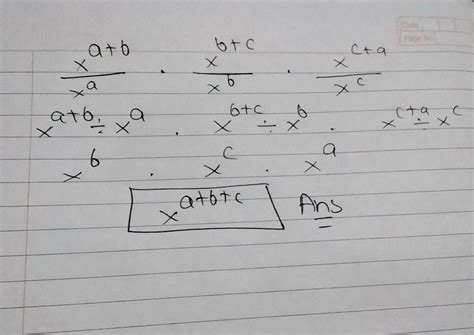 Date
Page No.
x^{a+b}/x^a · x^{b+c}/x^b · x^{c+a}/x^c
x^{a+b} ÷ x^a · x^{b+c} ÷ x^b · x^{c+a} ÷ x^c
x^b · x^c · x^a
x^{a+b+c} Ans